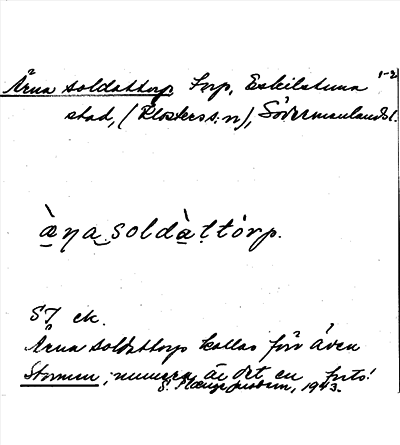 Ärna soldattorp Torp, Eskilstuna 1-2
stad, (Klosters s:n), Södermanlands l.
æ̀ŋa soldàttórp.
ST ek.
Ärna soldattorp kallas för även
Stormen, numera är det en forts!
S. 1943.